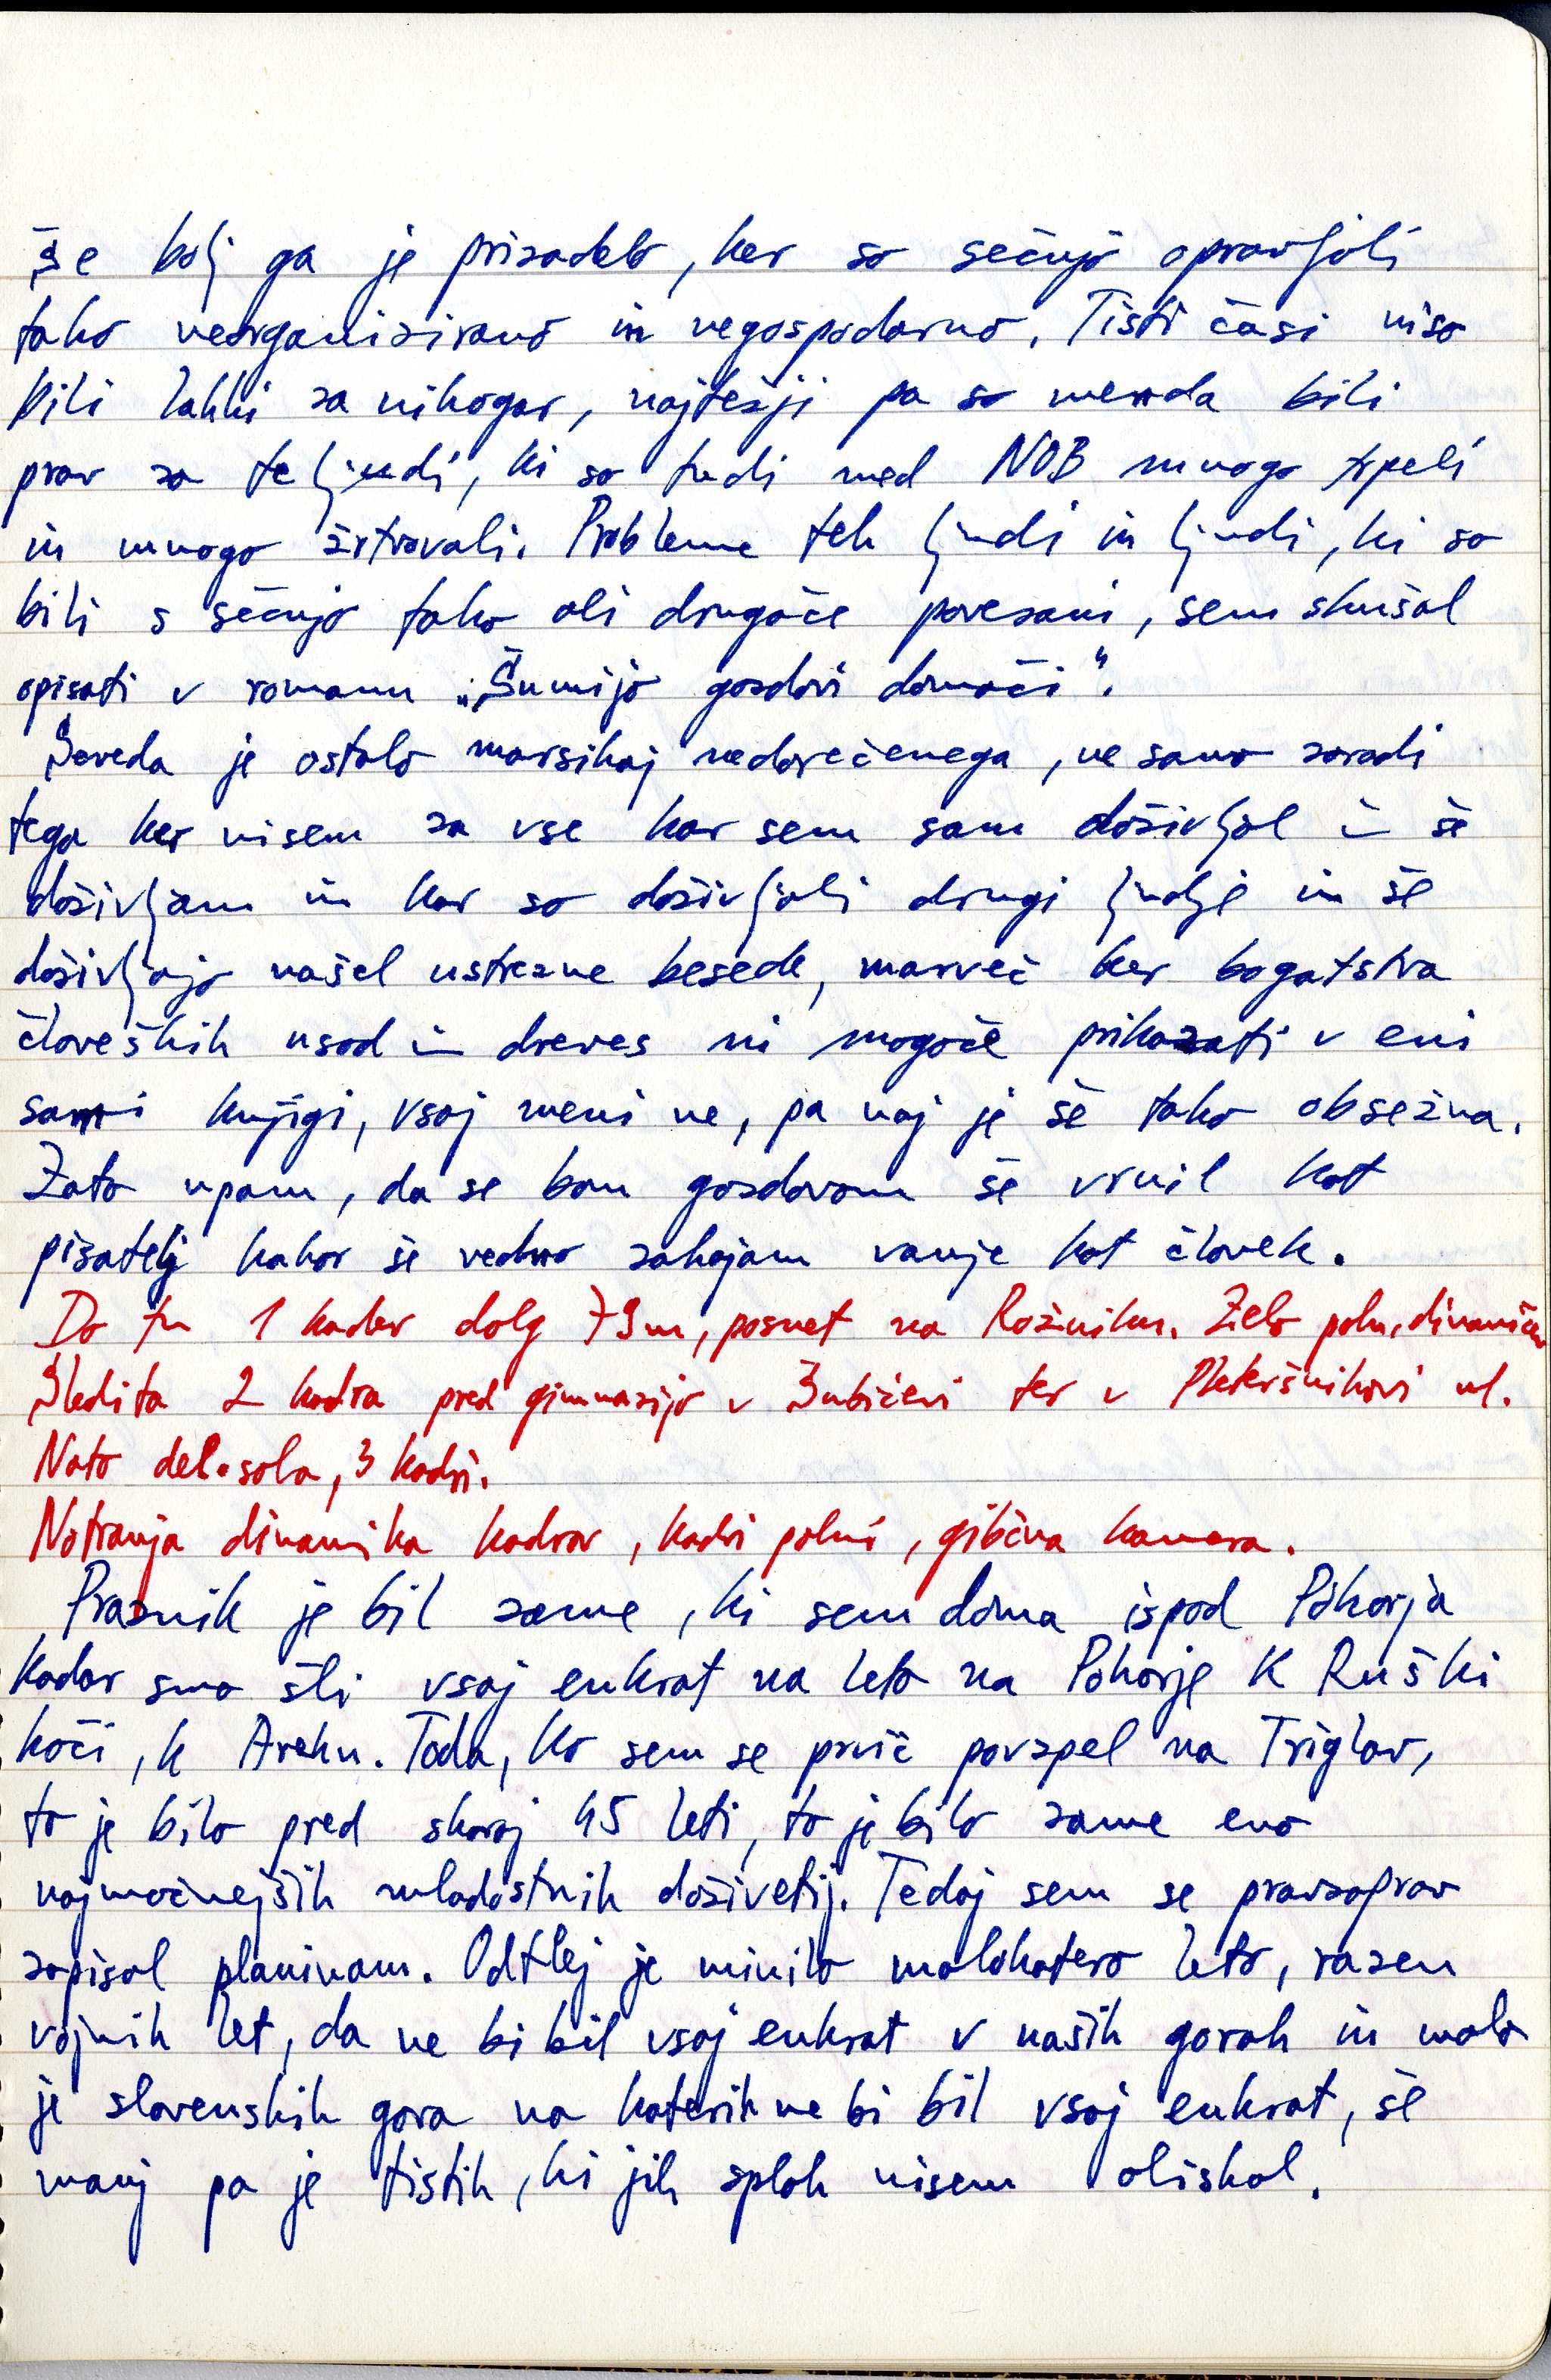 Še bolj ga je prizadelo, ker so sečnjo opravljali
tako neorganizirano in negospodarno. Tisti časi niso
bili lahki za nikogar, najtežji pa so menda bili
prav za te ljudi, ki so tudi med NOB mnogo trpeli
in mnogo žrtvovali. Probleme teh ljudi in ljudi, ki so
bili s sečnjo tako ali drugače povezani, sem skušal
opisati v romanu „Šumijo gozdovi domači".
Seveda je ostalo marsikaj nedorečenega, ne samo zaradi
tega ker nisem za vse kar sem sam doživljal in še
doživljam in kar so doživljali drugi ljudje in še
doživljajo našel ustrezne besede, marveč ker bogatstva
človeških usod in dreves ni mogoče prikazati v eni
sami knjigi, vsaj meni ne, pa naj je še tako obsežna.
Zato upam, da se bom gozdovom še vrnil kot
pisatelj kakor še vedno zahajam vanje kot človek.
Do tu 1 kader dolg 79m, posnet na Rožniku. Zelo poln, dinamičen
Sledita 2 kadra pred gimnazijo v Šubičevi ter v Pleteršnikovi ul.
Nato del. soba, 3 kadri.
Notranja dinamika kadrov, kadri polni, gibčna kamera.
Praznik je bil zame, ki sem doma izpod Pohorja
kadar smo šli vsaj enkrat na leto na Pohorje k Ruški
koči, k Arehu. Toda, ko sem se prvič povzpel na Triglav,
to je bilo pred skoraj 45 leti, to je bilo zame eno
najmočnejših mladostnih doživetij. Tedaj sem se pravzaprav
zapisal planinam. Odtlej je minilo malokatero leto, razen
vojnih let, da ne bi bil vsaj enkrat v naših gorah in malo
je slovenskih gora na katerih ne bi bil vsaj enkrat, še
manj pa je tistih, ki jih sploh nisem obiskal.